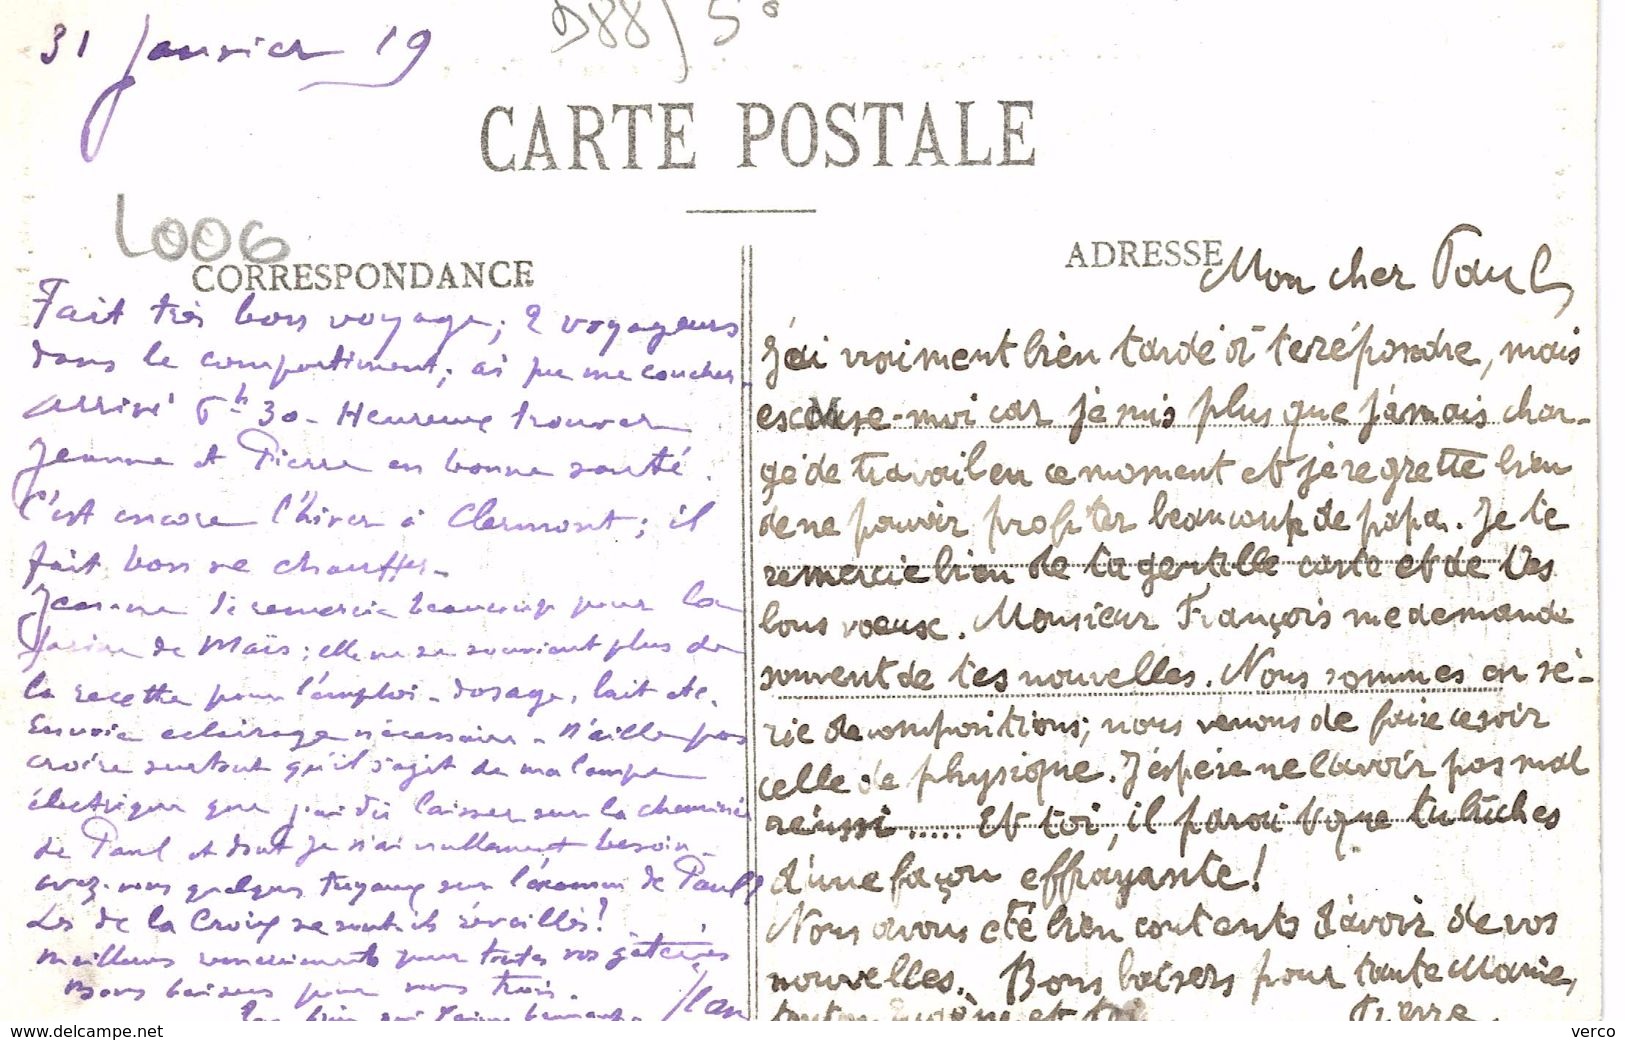 31 Janvier 19
D88/5°
CARTE POSTALE
L006
CORRESPONDANCE
Fait très bon voyage; 2 voyageurs
dans le compartiment; ai pu me coucher.
Arrivé 6h30 - Heureux trouver
Jeanne et Pierre en bonne santé.
C'est encore l'hiver à Clermont; il
fait bon se chauffer.
Jeanne te remercie beaucoup pour la
farine de Maïs; elle ne se souvient plus de
la recette pour l'emploi - dosage, lait etc.
Envoie éclairage nécessaire - N'aille pas
croire surtout qu'il s'agit de ma lampe
électrique que j'ai dû laisser sur la cheminée
de Paul et dont je n'ai nullement besoin -
avez-vous quelques tuyaux sur l'examen de Paul?
Les de la Croix se sont-ils réveillés?
Meilleurs remerciements pour toutes vos gâteries
Bons baisers pour vous trois.
Jean
ADRESSE
Mon cher Paul,
J'ai vraiment bien tardé à te répondre, mais
excuse-moi car je suis plus que jamais char-
gé de travail en ce moment et je regrette bien
de ne pouvoir profiter beaucoup de papa. Je te
remercie bien de ta gentille carte et de tes
bons voeux. Monsieur François me demande
souvent de tes nouvelles. Nous sommes en sé-
rie de compositions; nous venons de faire ce soir
celle de physique. J'espère ne l'avoir pas mal
réussi..... Et toi, il parait que tu bûches
d'une façon effrayante!
Nous avons été bien contents d'avoir de vos
nouvelles. Bons baisers pour tante Marie,
tonton Eugène et toi
Pierre.
verco